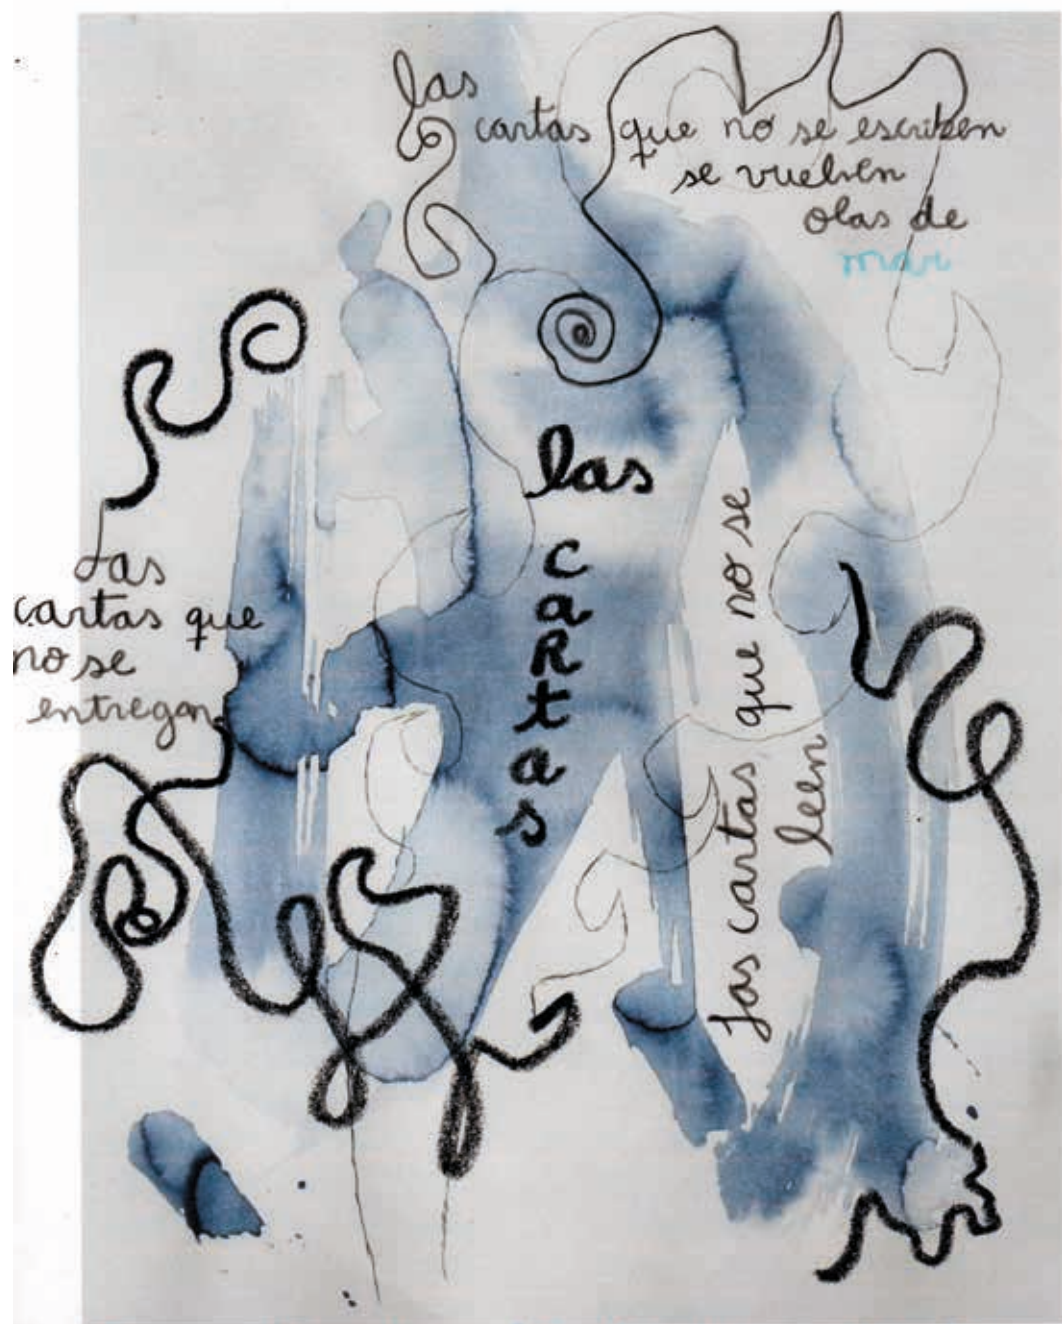 las
cartas que no se escriben
se vuelven
olas de
mar
las
caRtas
Las
cartas que
no se
entregan
Las cartas que no se
leen